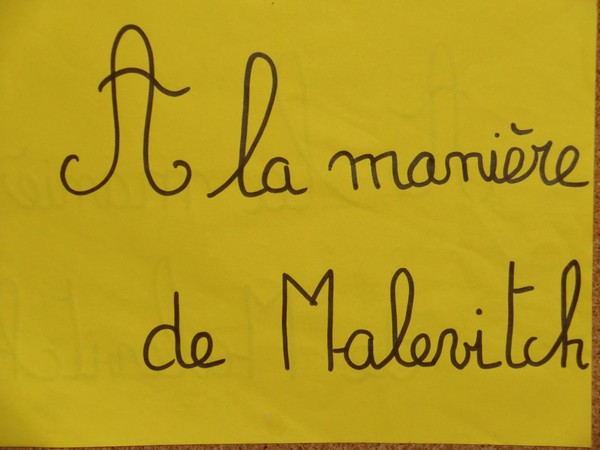 A la manière
de Malevitch